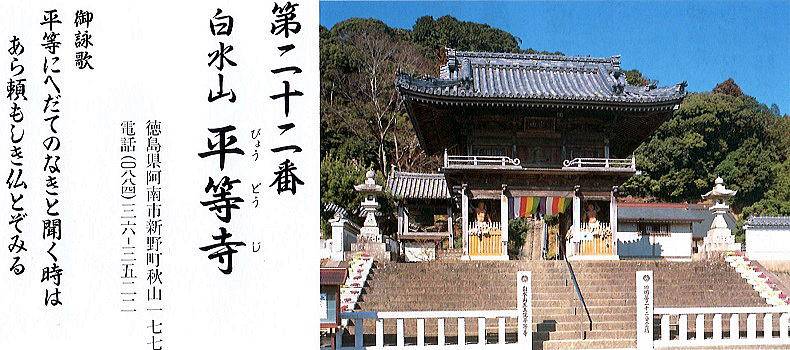 第二十二番
白水山 平等寺
びょう どう じ
徳島県阿南市新野町秋山一七七
電話(〇八八四)三六-三五二二
御詠歌
平等にへだてのなきと聞く時は
あら頼もしき仏とぞみる